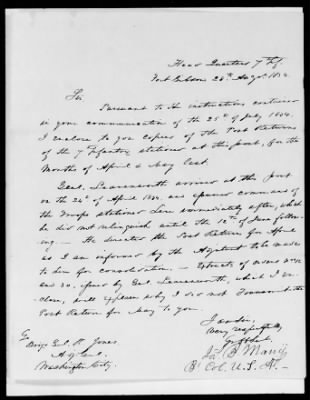 Head Quarters 7th Inf.
Fort Gibson 28th Augst 1834.
Sir
Pursuant to the instructions contained
in your communication of the 25th of July 1834.
I enclose to you copies of the Post Returns
of the 7th Infantry stationed at this post, for the
Months of April & May last.
Genl. Leavenworth arrived at this post
on the 24th of April 1834. and assumed command of
the Troops stationed here immediately after, which
he did not relinquish until the 12th of June follow-
ing. — He directed the Post Return for April
as I am informed by the Adjutant to be made
to him for consolidation. — Extracts of orders No
and 20. issued by Genl. Leavenworth, which I en-
close, will explain why I did not transmit the
Post Return for May to you.
I am Sir,
Very respectfully
Yr Obt
Jas B. Many
Bt Col. U.S.A.
To
Brigr Genl. R. Jones
A. G.
Washington City.